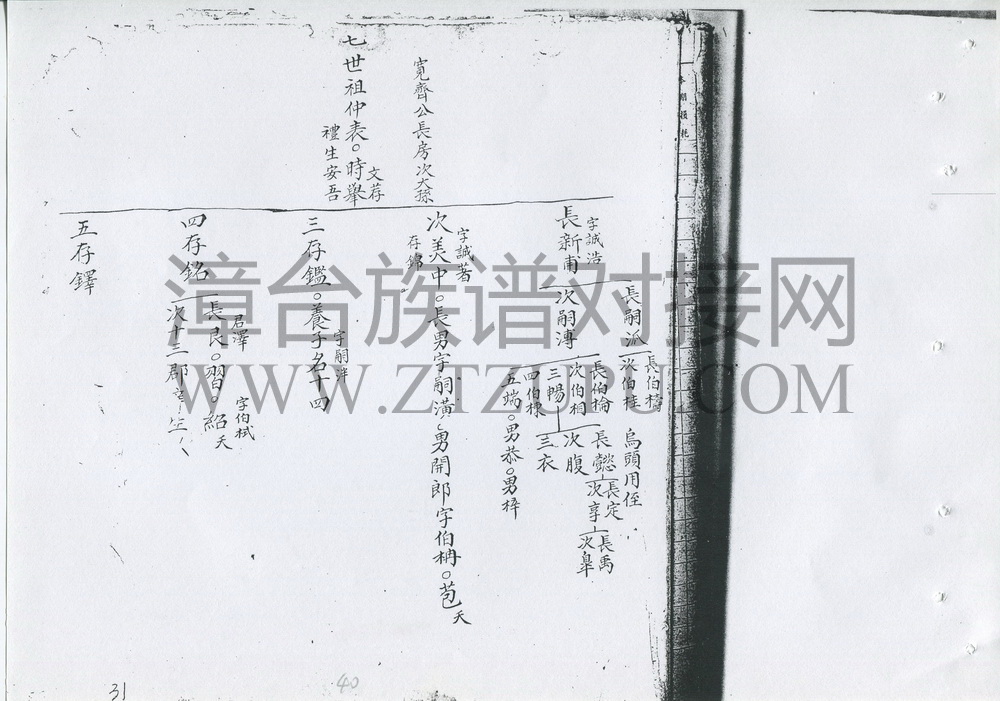 寬齊公長房次大孫
七世祖仲表。時舉
文荐
禮生安吾
字誠浩
長新甫
長嗣派
次嗣溥
長伯檮
次伯桂
烏頭用侄
長伯棆
次伯相
三暢
四伯椽
五端。男恭。男梓
長懿
次腹
三衣
長定
次享
長禹
次皐
字誠著
次美中。長男字嗣潢。男開郎字伯柟。苞夭
存錦
三存鑑。養子名十四
字嗣泮
四存銘
君澤
長艮。習。紹夭
字伯栻
次十三郎
五存鐸
漳台族谱对接网
WWW.ZTZUPU.COM
31
40